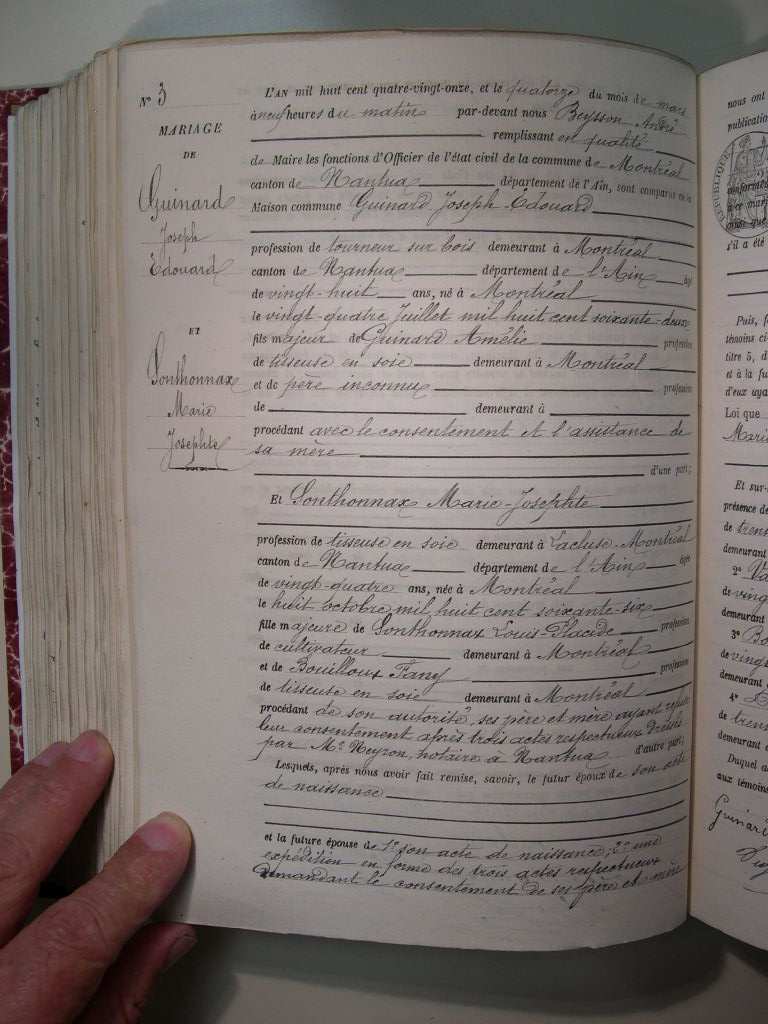 N° 3
MARIAGE
DE
Guinard
Joseph
Edouard
ET
Sonthonnax
Marie
Josephte
L'AN mil huit cent quatre-vingt-onze, et le quatorze du mois de mars
à neuf heures du matin par-devant nous Beysson André
remplissant en qualité
de Maire les fonctions d'Officier de l'état civil de la commune de Montréal
canton de Nantua département de l'Ain, sont comparus en la
Maison commune Guinard Joseph-Edouard
profession de tourneur sur bois demeurant à Montréal
canton de Nantua département de l'Ain âgé
de vingt-huit ans, né à Montréal
le vingt-quatre Juillet mil huit cent soixante-deux
fils majeur de Guinard Amélie profession
de tisseuse en soie demeurant à Montréal
et de père inconnu profession
de demeurant à
procédant avec le consentement et l'assistance de
sa mère
d'une part;
Et Sonthonnax Marie-Josephte
profession de tisseuse en soie demeurant à Lacluse-Montréal
canton de Nantua département de l'Ain âgée
de vingt-quatre ans, née à Montréal
le huit octobre mil huit cent soixante-six
fille majeure de Sonthonnax Louis-Placide profession
de cultivateur demeurant à Montréal
et de Bouilloux Fany profession
de tisseuse en soie demeurant à Montréal
procédant de son autorité, ses père et mère ayant refusé
leur consentement après trois actes respectueux dressés
par Me Neyron, notaire à Nantua d'autre part;
Lesquels, après nous avoir fait remise, savoir, le futur époux de son acte
de naissance
et la future épouse de 1° son acte de naissance; 2° une
expédition en forme des trois actes respectueux
demandant le consentement de ses père et mère
nous ont
publication
REPUBLIQUE
conformé
à ce mari
s'il a été
Puis,
témoins ci
titre 5, d
et à la fu
d'eux aya
Loi que
Marie
Et sur-
présence de
de trent
demeurant
2°
de vingt
demeurant
3° Bo
de vingt
demeurant
4°
de tren
demeurant
Duquel a
aux témoins
Guinard